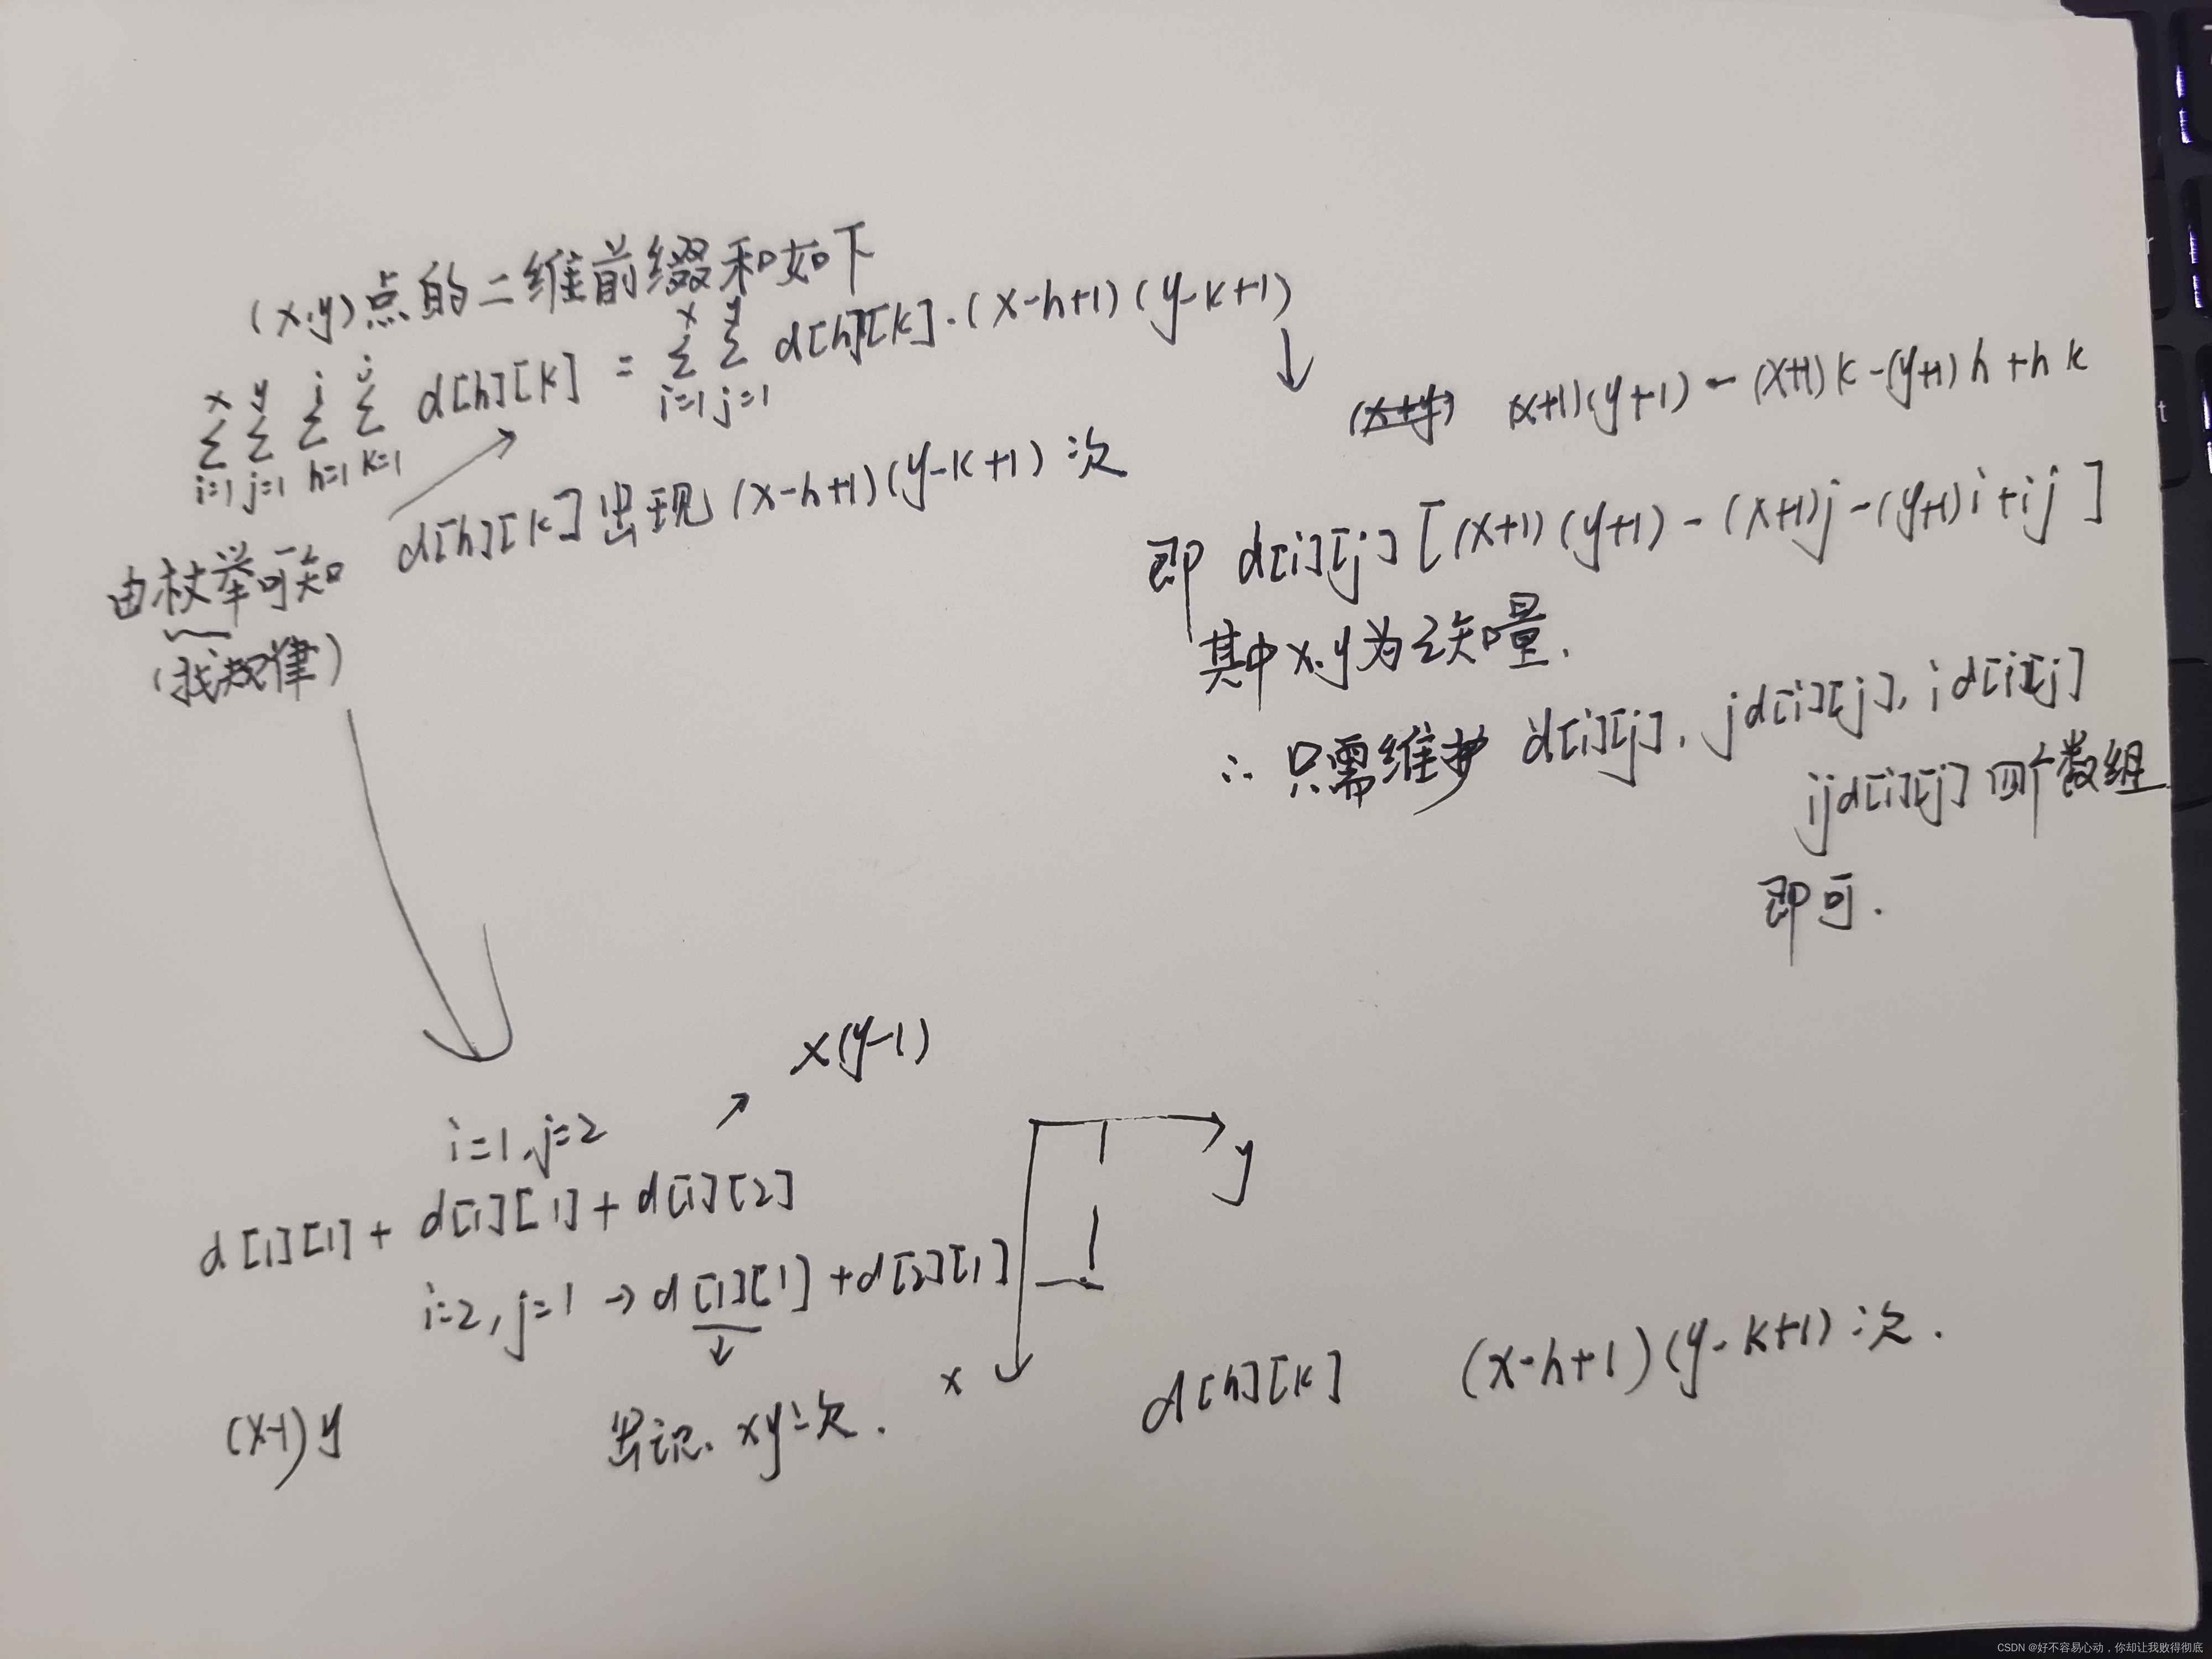 (x.y)点的二维前缀和如下
x y i j
Σ Σ Σ Σ d[h][k] = Σ Σ d[h][k]·(x-h+1)(y-k+1)
i=1 j=1 h=1 k=1
x y
i=1 j=1
(x+1)(y+1) - (x+1)k-(y+1)h+hk
由枚举可知 d[h][k]出现(x-h+1)(y-k+1)次
(找规律)
即 d[i][j][(x+1)(y+1)-(x+1)j-(y+1)i+ij]
其中x.y为已知量.
∴ 只需维护 d[i][j], jd[i][j], id[i][j]
ijd[i][j]四个数组
即可.
x(y-1)
i=1,j=2
d[1][1]+ d[1][1]+d[1][2]
i=2,j=1 → d[1][1]+d[2][1]
y
x
(x-1)y
出现. xy次.
d[h][k] (x-h+1)(y-k+1)次.
CSDN @好不容易心动，你却让我败得彻底